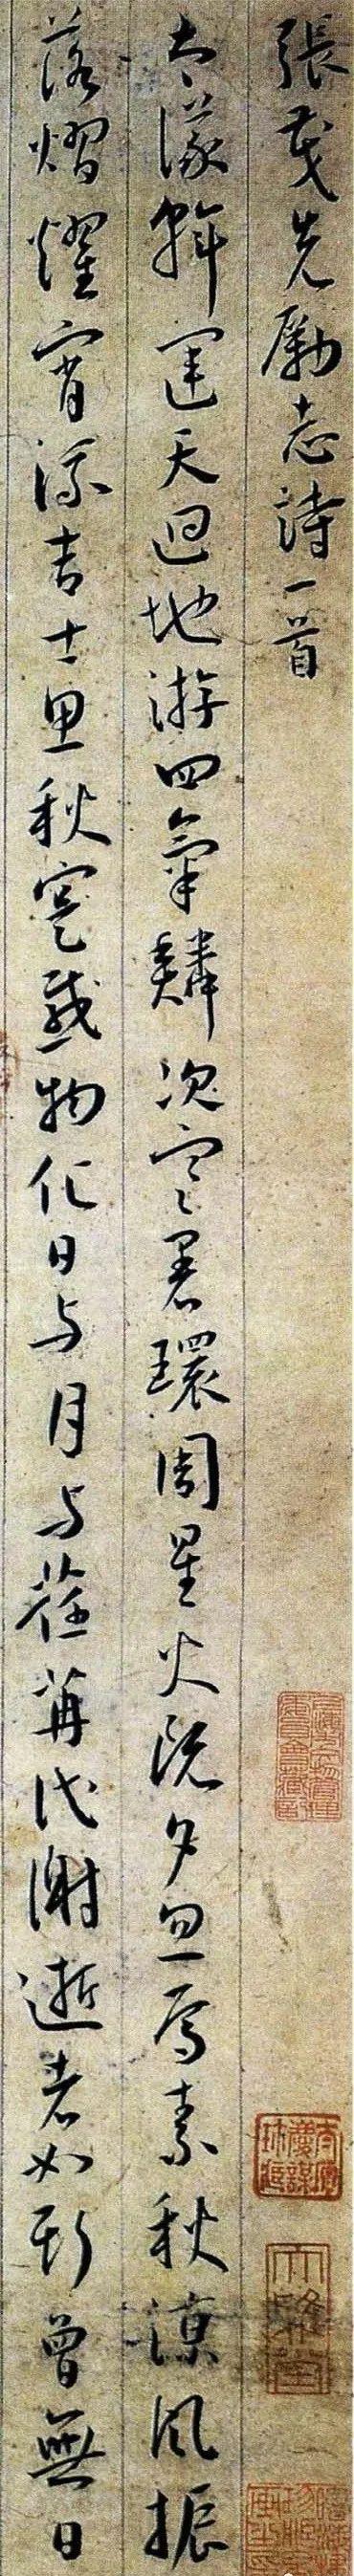 張茂先勵志詩一首
大儀斡運天迴地游四氣鱗次寒暑環周星火既夕忽焉素秋涼風振
落熠燿宵流吉士思秋寔感物化日与月与荏苒代謝逝者如斯曾無日